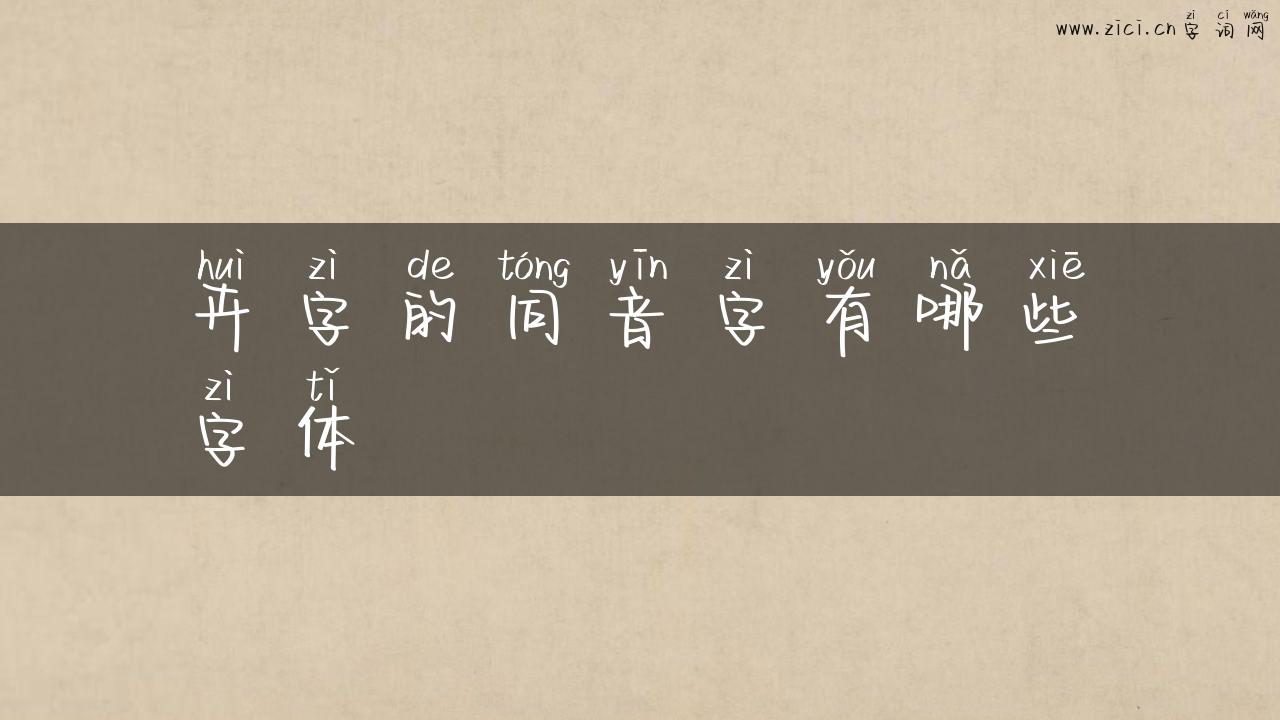 zì cí wǎng
www.zici.cn 字词网
huì zì de tóng yīn zì yǒu nǎ xiē
卉字的同音字有哪些
zì tǐ
字体